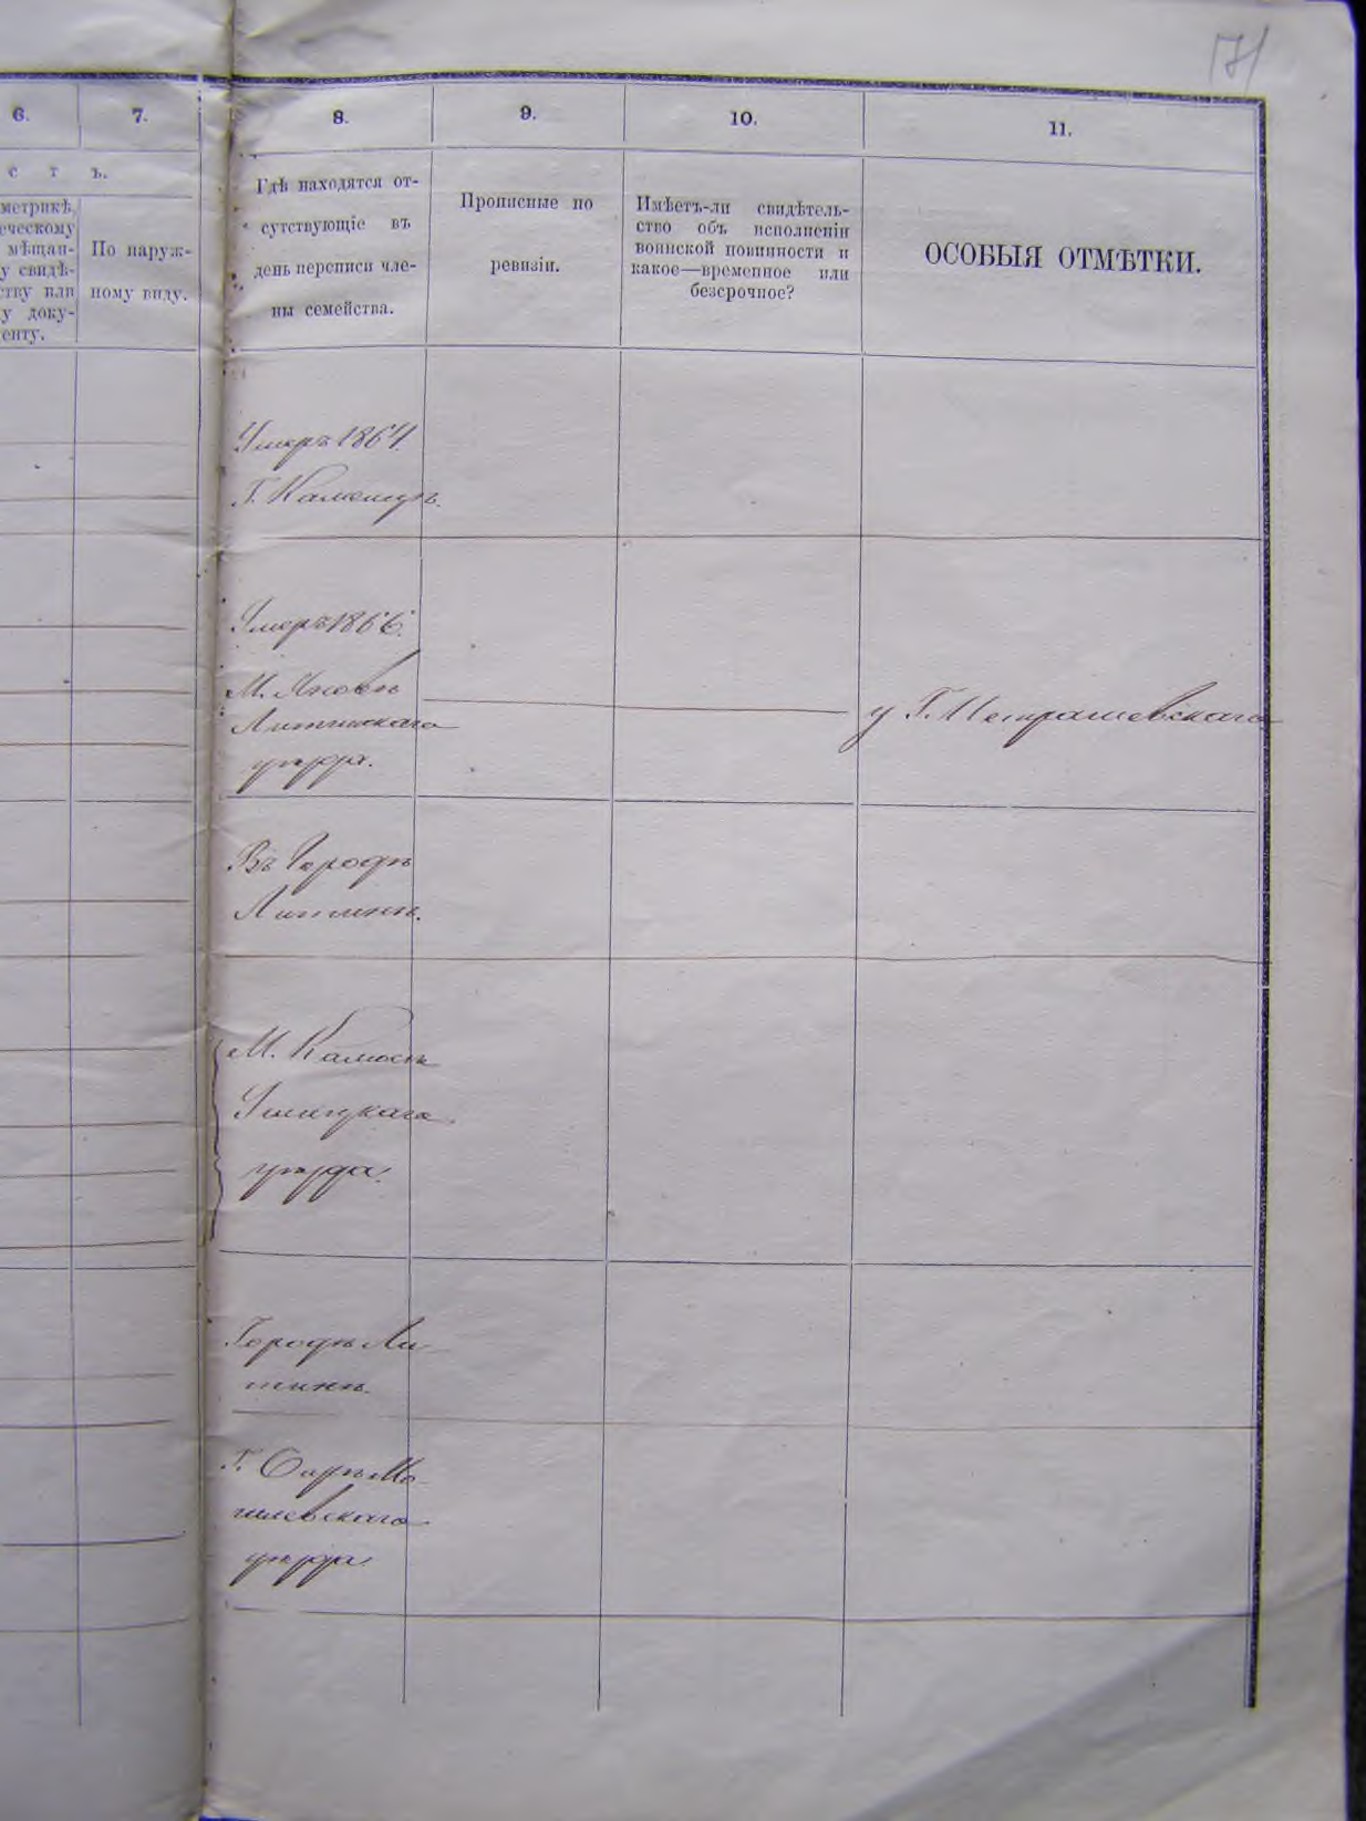 171
6.
7.
8.
9.
10.
11.
с т ъ.
метрикѣ,
еческому
мѣщан-
у свидѣ-
ству или
у доку-
енту.
По наруж-
ному виду.
Гдѣ находятся от-
сутствующіе въ
день переписи чле-
ны семейства.
Прописные по
ревизіи.
Имѣетъ-ли свидѣтель-
ство объ исполненіи
воинской повинности и
какое—временное или
безсрочное?
ОСОБЫЯ ОТМѢТКИ.
Умеръ 1864.
Г.
Умеръ 1866.
М. Яновѣ
Литинскаго
уѣзда.
у Г.
Въ Городѣ
Литинѣ.
М.
Ушицкаго
уѣзда.
Городѣ Ли
тинѣ.
Г. Барѣ Мо
гилевскаго
уѣзда.